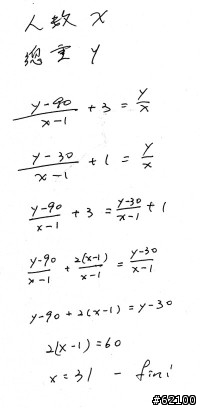 人数 x
總重 y
(y-90)/(x-1) + 3 = y/x
(y-30)/(x-1) + 1 = y/x
(y-90)/(x-1) + 3 = (y-30)/(x-1) + 1
(y-90)/(x-1) + 2(x-1)/(x-1) = (y-30)/(x-1)
y-90 + 2(x-1) = y-30
2(x-1) = 60
x = 31 - fini
#62100